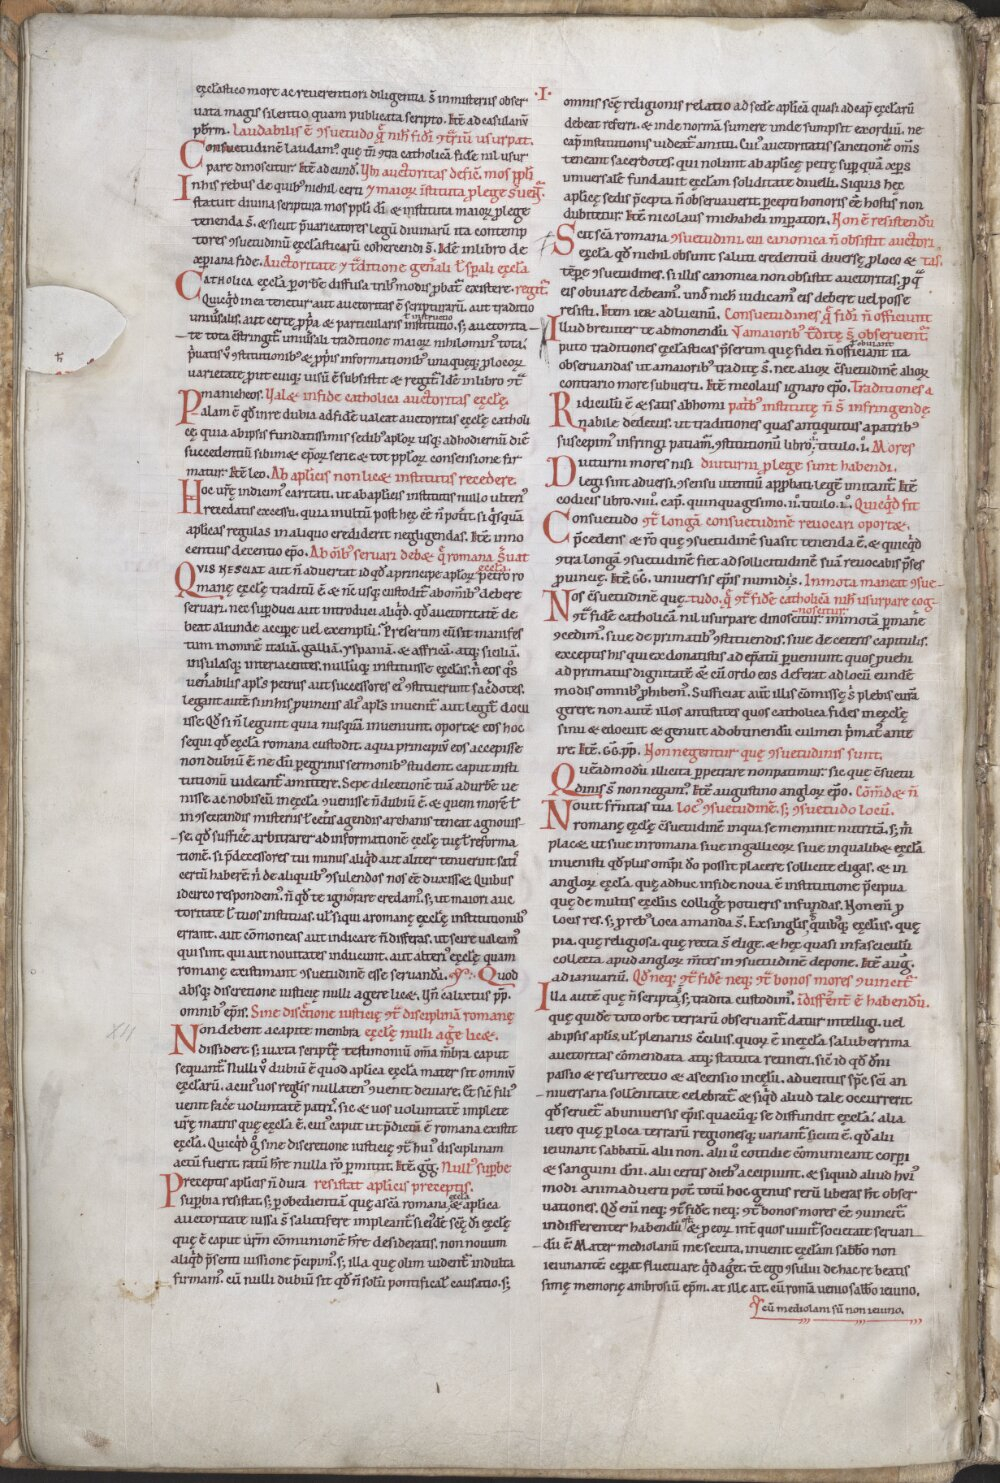 ·I·
ęcclesiastico more ac reverentiori diligentia s̄ in misteriis obser
vata magis silentio, quam publicata scripto. Itē ad casulanū
pbrm. Laudabilis ē ꝯsuetudo q̄ nihil fidei ꝯtrariū usurpat.
Consuetudinē laudam' quę tn̄ ꝯtra catholicā fidē nil usur
pare dinoscitur. Itē ad eund. Ubi auctoritas deficit. mos ppli
In his rebus de quib' nichil certi & maioꝝ īstituta ꝓ lege servent.
statuit divina scriptura mos ppli di & instituta maioꝝ ꝓ lege
tenenda s̄. & sicut p̄varicatores legū divinarū ita contemp
tores ꝯsuetudinū ęcclesiasticarū cohercendi s̄. Idē in libro de
xp̄iana fide. Auctoritate & traditione gen̄ali l' sp̄ali ęccla
Catholica ęccla p orbē diffusa trib' modis probat' existere. regit̄.
Quicq̄d in ea tenetur aut auctoritas ē scripturarū. aut traditio
univ̄salis. aut certe ppria & particularis institutio. s; auctorita
te tota ēstringit̄. univ̄sali traditione maioꝝ nihilomin' tota.
p̄vatis v̄ ꝯstitutionib' & ppriis informationib' unaqueq; ꝓ locoꝝ
varietate ꝓut cuiq; visū ē subsistit & regit̄. Idē in libro ꝯtra
manicheos. Valet in fide catholica auctoritas ęcclę.
Palam ē qd in re dubia ad fidē valeat auctoritas ęcclę catholi
cę, quia ab ipsis fundatissimis sedib' aploꝝ usq; ad hodiernū diē
succedentiū sibimet ep̄oꝝ serie & tot pploꝝ consensione fir
matur. Itē leo. Ab aplicis non licet institutis recedere.
Hoc vr̄ę indicim' caritati. ut ab aplicis institutis nullo ulteri'
recedatis excessu. quia inultū post hęc ēē n̄ poterit. si q̄squā
aplicas regulas in aliquo crediderit negligendas. Itē inno
centius decentio ep̄o. Ab om̄ib' servari debet q̄ romana servat
ęccla.
Quis nesciat aut n̄ advertat id qd a principe aploꝝ petro ro
manę ęcclę traditū ē & nc̄ usq; custodit̄ ab om̄ib' debere
servari. nec sup̄duci aut introduci aliq̄d. qd auctoritatē de
beat aliunde accipe vel exemplū. Presertim cū sit manifes
tum in omnē italiā. galliā. yspaniā. & affricā. atq; siciliā.
insulasq; interiacentes. nullūq; instituisse ęcclas. n̄ eos q°s
ven̄abilis apls petrus aut successores ei' ꝯstituerunt sac̄dotes.
legant autē si in his ꝓvinciis ali' apls invenit̄ aut legit̄ docu
isse. Qd si n̄ legunt quia nusquā inveniunt. oportet eos hoc
sequi qd ęccla romana custodit. a qua principiū eos accepisse
non dubiū ē. ne dū pegrinis sermonib' student. caput insti
tutionū videant̄ amittere. Sepe dilectionē tuā ad urbē ve
nisse ac nobiscū in ęccla ꝯvenisse n̄ dubiū ē. & quem morē l'
in ꝯsecrandis misteriis l' cet̄is agendis archanis teneat agnovis
se. qd sufficē arbitrarer ad informationē ęcclę tuę l' reforma
tionē. si p̄decessores tui minus aliq̄d aut aliter tenuerunt satis
certū haberē n̄ de aliquib' ꝯsulendos nos ēē duxisset. Quibus
idcirco respondem'. n̄ qd te ignorare credam'. s; ut maiori auc
toritate l' tuos instituas. ul' si qui a romanę ęcclę institutionib'
errant. aut cōmoneas aut indicare n̄ differas. ut scire valeam'
qui sint. qui aut novitates inducunt. aut alteri' ęcclę quam
romanę existimant ꝯsuetudinē esse servandā. Quod
absq; discretione iusticię nulli agere licet. Un̄ calixtus pp̄.
omnib' ep̄is. Sine discr̄tione iusticię ꝯtra disciplinā romanę
Non debent a capite membra ęcclesię nulli agere licet.
dissidere s; iuxta scriptrę testimoniū om̄ia m̄bra caput
sequant̄. Nulli v° dubiū ē quod aplica ęccla mater sit omniū
ęcclarū. a cui' vos reglis nullaten' ꝯvenit deviare. Et sic fili'
venit facere voluntatē patris. sic & vos voluntatē implete
vr̄ę matris quę ęccla ē. cui' caput ut p̄dictū ē romana existit
ęccla. Quicq̄d g° sine discretione iusticię ꝯtra hui' disciplinam
actū fuerit. ratū hr̄e nulla ro permittit. Itē gg. Nullus superbe
Preceptis aplicis n̄ dura resistat aplicis preceptis.
sup̄bia resistat. s; p obedientiā quę a scā romana ęccla & aplica
auctoritate iussa s̄ salutifere impleant̄. si eidē scę di ęcclę
quę ē caput vr̄m cōmunionē hr̄e desideratis. non novum
aliq̄d p̄senti iussione p̄cipim'. s; illa que olim vident̄ indulta
firmam'. cū nulli dubiū sit qd n̄ solū pontificalis causatio. s;
omnis scę religionis relatio ad sedē aplicā quasi ad capud ęcclarū
debeat referri. & inde normā sumere unde sumpsit exordiū. ne
cap̄ institutionis videat̄ amitti. Cui' auctoritatis sanctionē om̄s
teneant sacerdotes. qui nolunt ab aplicę petrę sup quā xp̄s
universalē fundavit ęcclam soliditate divelli. Siquis hęc
aplicę sedis p̄cepta n̄ observaverit. percepti honoris ēē hostis non
dubitetur. Itē nicolaus michaheli imperatori. Non ē resistendū
Scit scā romana ꝯsuetudini cui canonica n̄ obsistit auctori
ęccla. qd nichil obsunt saluti credentiū diversę ꝓ loco & tas.
tēpore ꝯsuetudines. si illis canonica non obsistit auctoritas, ꝓ qua
eis obviare debeam'. und nichil iudicam' eis debere vel posse
resisti. Item iero ad lucinū. Consuetudines q̄ fidei n̄ officiunt
Illud breviter te admonendū & a maiorib' tradite s̄ observent̄.
puto traditiones ęcclesiasticas p̄sertim quę fidei n̄ officiant ita
observandas ut a maioribus traditę s̄. nec alioꝝ c̄suetudinē alioꝝ
contrario more subverti. Itē nicolaus ignaro ep̄o. Traditiones a
Ridiculū ē & satis abhomi patribus institutę n̄ s̄ infringendę.
nabile dedecus. ut traditiones quas antiquitus a patrib'
suscepim' infringi patiam'. ꝯstitutionū libro. titulo. i. Mores
Diuturni mores nisi diuturni ꝓ lege sunt habendi.
legi sunt adversi. ꝯsensu utentiū approbati legē imitant̄. Itē
codicis libro. viii. cap. quinquagesimo. ii. titulo. i. Quicq̄d fit
Consuetudo ꝯtra longā consuetudinē revocari oportet.
p̄cedens & ro quę ꝯsuetudinē suasit tenenda ē. & quicq̄d
ꝯtra longā ꝯsuetudinē fiet ad sollicitudinē suā revocabis p̄ses
ꝓvincię. Itē GG. universis ep̄is numidię. Inmota maneat ꝯsue
Nos c̄suetudinē que tudo. q̄ ꝯtra fidē catholicā nihil usurpare cog
noscitur.
ꝯtra fidē catholicā nil usurpare dinoscitur. immotā p̄manē
ꝯcedim'. sive de primatib' ꝯstituendis. sive de ceteris capitulis.
exceptis his qui ex donatistis ad ep̄atū perveniunt. quos provehi
ad primatus dignitatē & cū ordo eos deferat ad locū eundē
modis omnib' ꝓhibem'. Sufficiat aut illis cōmissę s; plebis curā
gerere. non autē illos antistites quos catholica fides in ęcclę
sinu & edocuit & genuit ad obtinendū culmen p̄mat' ante
ire. Itē. GG. pp. Non negentur quę ꝯsuetudinis sunt.
Quēadmodū illicita ppetrare non patimur. sic que c̄suetu
dinis s̄ non negam'. Itē augustino angloꝝ ep̄o. Cōmdet n̄
Novit fr̄nitas tua loc' ꝯsuetudinē. s; ꝯsuetudo locū.
romanę ęcclę c̄suetudinē in qua se meminit nutritā. s; m̄
placet. ut sive in romana sive in gallicoꝝ sive in qualibet ęccla
invenisti qd plus omp̄i do possit placere sollicite eligas. & in
angloꝝ ęccla quę adhuc in fide nova ē institutione p̄cipua
quę de multis ęccliis colligere potueris infundas. Non enī ꝓ
locis res. s; ꝓ reb' loca amanda s̄. Ex singlis q̄ quibq; ęccliis. quę
pia. quę religiosa. quę recta s̄ elige. & hęc quasi in fasciculū
collecta. apud angloꝝ mētes in ꝯsuetudinē depone. Itē aug.
ad ianuariū. Qd neq; ꝯtra fidē neq; ꝯtra bonos mores ꝯvincit̄
Illa autē quę n̄ scripta s; tradita custodim'. īdifferent̄ ē habendū.
quę quidē toto orbe terrarū observant̄ datur intelligi. vel
ab ipsis aplis. ul' plenariis ēciliis. quoꝝ ē in ęccla saluberrima
auctoritas cōmendata atq; statuta retineri. sic̄ id qd dn̄i
passio & resurrectio & ascensio in celū. adventus sp̄c sc̄i an
niversaria sollēnitate celebrat̄ & siq̄d aliud tale occurrerit
qd servet̄ ab universis ep̄is. quacūq; se diffundit ęccla. alia
vero quę p loca terrarū regionesq; variant̄. sicuti ē. qd alii
ieiunant sabbatū. alii non. alii v° cotidie cōmunicant corpi
& sanguini dn̄i. alii certis dieb' accipiunt. & siquid aliud hui'
modi animadverti pot̄. totū hoc genus rerū liberas ht̄ obser
vationes. Qd enī neq; ꝯtra fidē neq; ꝯtra bonos mores ēē ꝯvincit̄
indifferenter habendū & ꝓ eoꝝ int̄ quos vivit̄ societate servan
dū ē. Mater mediolanū me secuta, invenit ęcclam sabb̄o non
ieiunantē. ceperat fluctuare q̄d aget. tc̄ ego ꝯsului de hac re beatis
simę memorię ambrosiū ep̄m. at ille ait. cū romā venio sabb̄o ieiuno.
cū mediolani sū non ieiuno.
XII